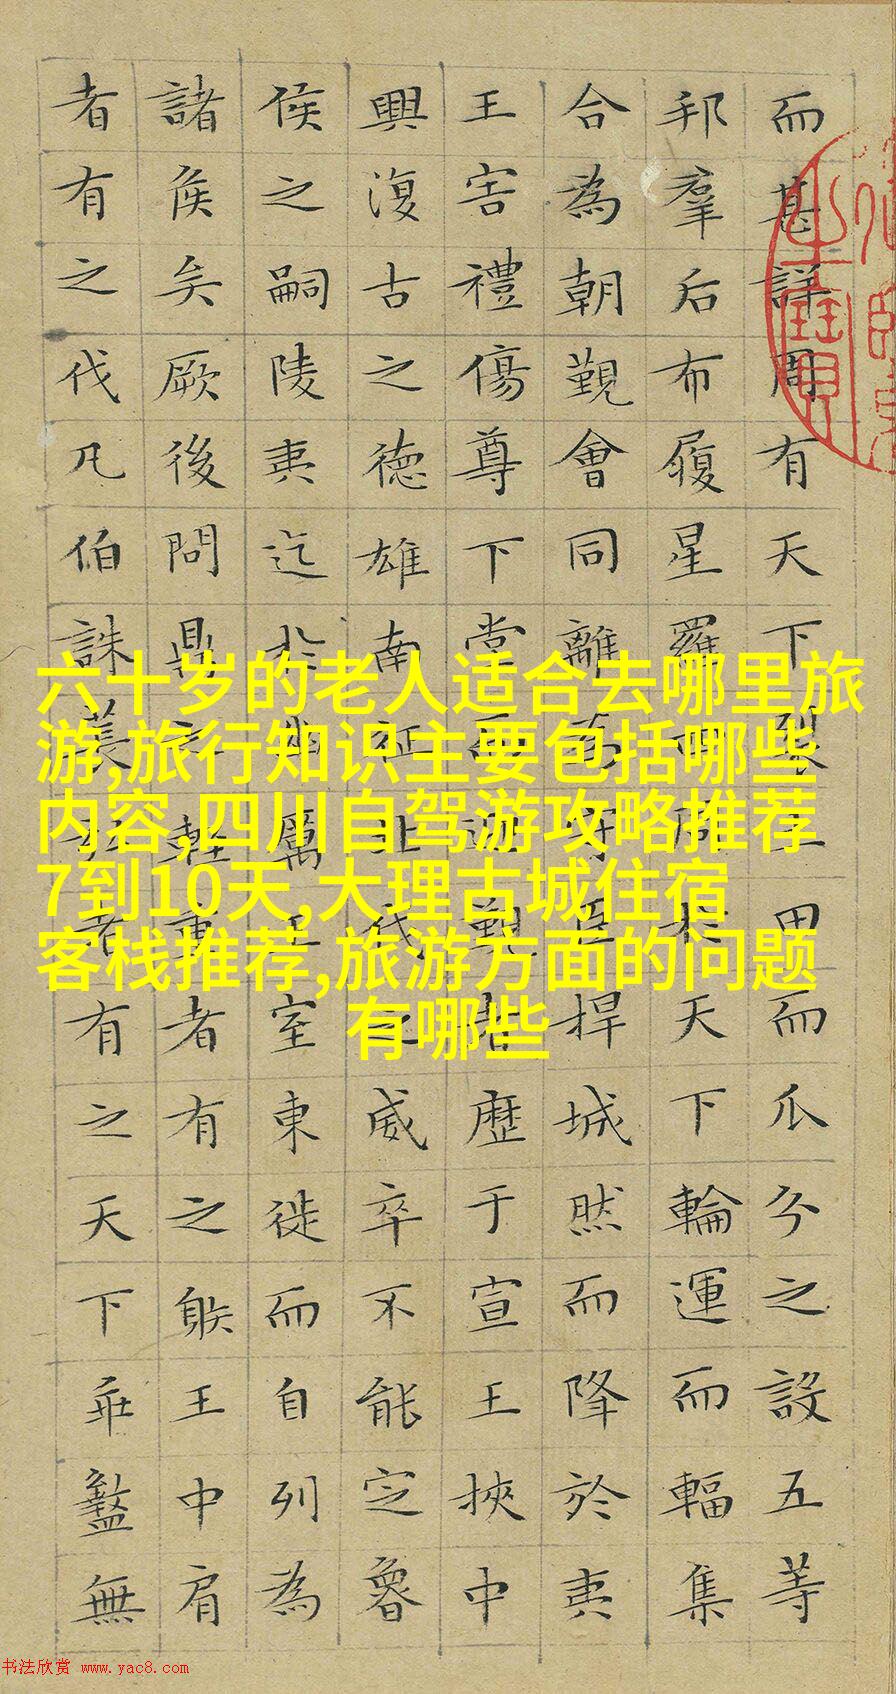 而甚詳周有天下裂土田而瓜分之設五等
邦羣后布履星羅四周於天下輪運而輻集
合為朝覲會同離為守臣捍城然而降於夷
王害禮傷尊下堂而迎覲者歷于宣王挾中
興復古之德雄南征北伐之威卒不能定魯
侯之嗣陵夷迄於幽厲王室東徙而自列為
諸侯矣厥後問鼎之輕重者有之䠶王中肩
者有之伐凡伯誅萇弘者有之天下乖盭無
六十岁的老人适合去哪里旅
游,旅行知识主要包括哪些
内容,四川自驾游攻略推荐
7到10天,大理古城住宿
客栈推荐,旅游方面的问题
有哪些
书法欣赏 www.yac8.com